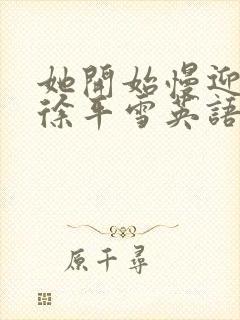 她開始慢迎
徐平雪英語
原千尋